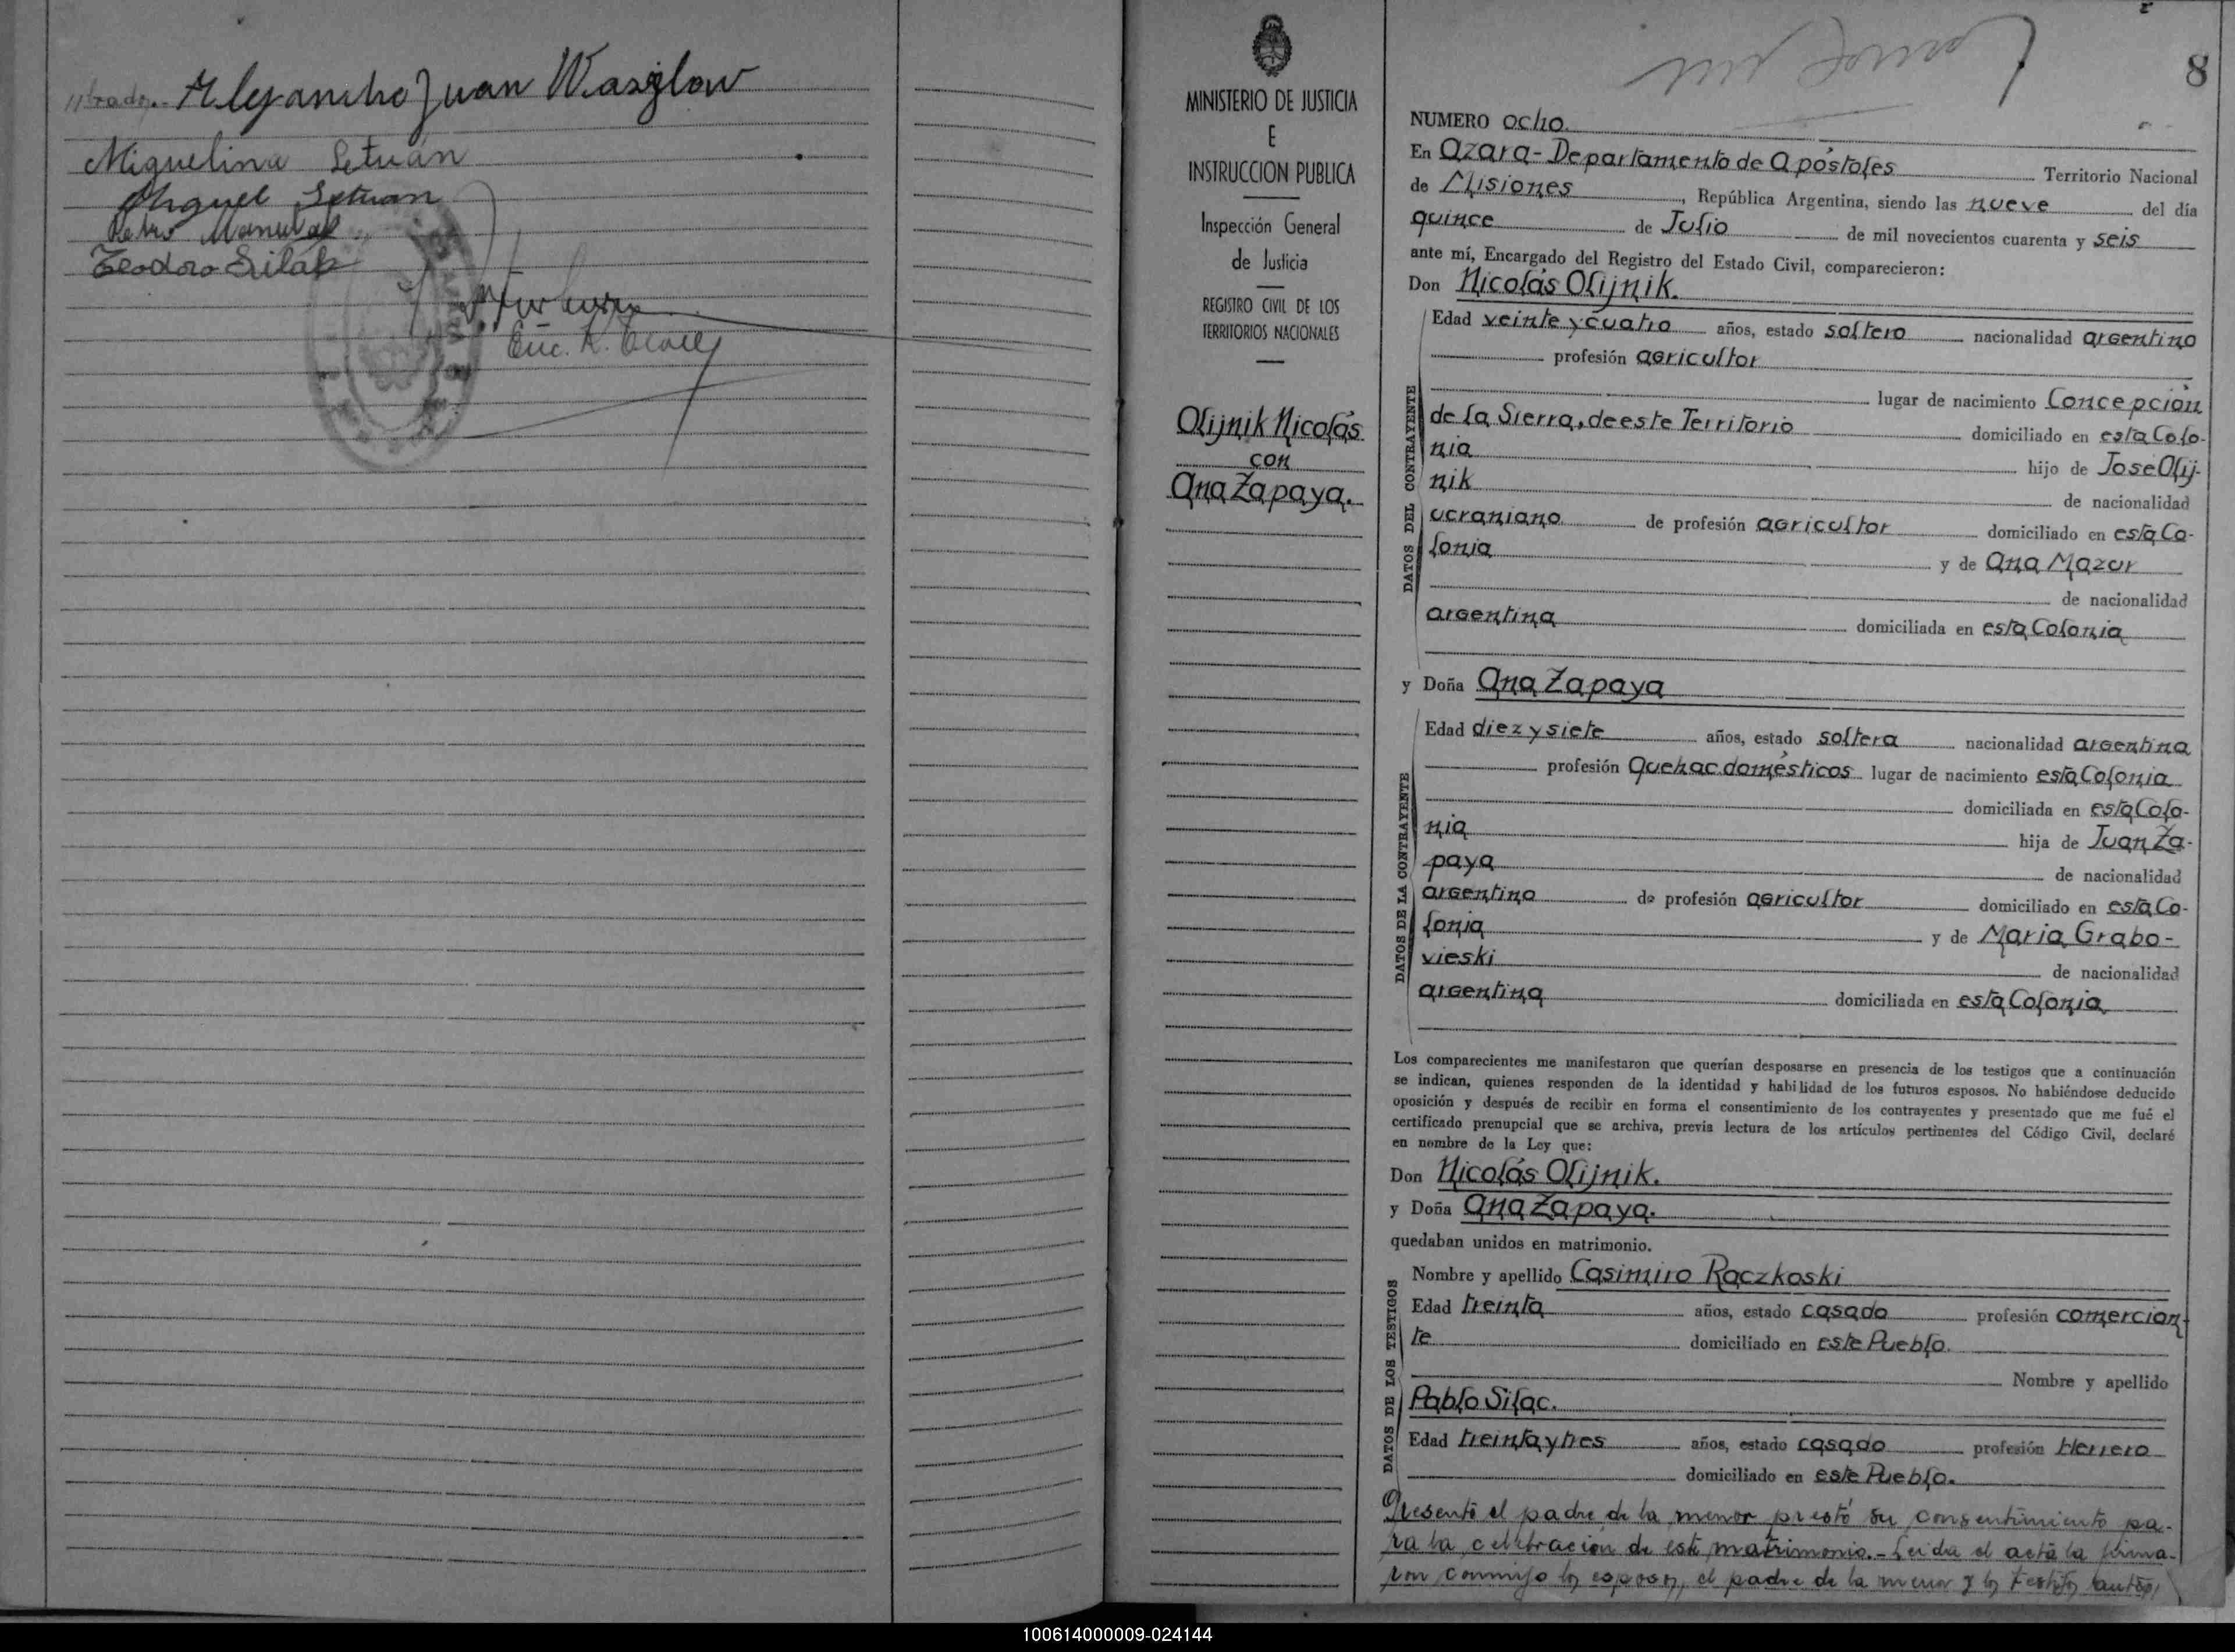 Alejandro Juan Wasylow
Miguelina Setuán
Miguel Setuan
Teodoro Silak
MINISTERIO DE JUSTICIA
E
INSTRUCCION PUBLICA
Inspección General
de Justicia
REGISTRO CIVIL DE LOS
TERRITORIOS NACIONALES
Olijnik Nicolás
con
Ana Zapaya.
8
NUMERO ocho.
En Azara - Departamento de Apóstoles Territorio Nacional
de Misiones, República Argentina, siendo las nueve del día
quince de Julio de mil novecientos cuarenta y seis
ante mí, Encargado del Registro del Estado Civil, comparecieron:
Don Nicolás Olijnik.
Edad veinte y cuatro años, estado soltero nacionalidad argentino
profesión agricultor
lugar de nacimiento Concepción
de la Sierra, de este Territorio domiciliado en esta Colo-
nia hijo de José Olij-
nik de nacionalidad
ucraniano de profesión agricultor domiciliado en esta Co-
lonia y de Ana Mazur
de nacionalidad
argentina domiciliada en esta Colonia
DATOS DEL CONTRAYENTE
y Doña Ana Zapaya
Edad diez y siete años, estado soltera nacionalidad argentina
profesión Quehac. domésticos lugar de nacimiento esta Colonia
domiciliada en esta Colo-
nia hija de Juan Za-
paya de nacionalidad
argentino de profesión agricultor domiciliado en esta Co-
lonia y de María Grabo-
vieski de nacionalidad
argentina domiciliada en esta Colonia
DATOS DE LA CONTRAYENTE
Los comparecientes me manifestaron que querían desposarse en presencia de los testigos que a continuación
se indican, quienes responden de la identidad y habilidad de los futuros esposos. No habiéndose deducido
oposición y después de recibir en forma el consentimiento de los contrayentes y presentado que me fué el
certificado prenupcial que se archiva, previa lectura de los artículos pertinentes del Código Civil, declaré
en nombre de la Ley que:
Don Nicolás Olijnik.
y Doña Ana Zapaya.
quedaban unidos en matrimonio.
Nombre y apellido Casimiro Raczkoski
Edad treinta años, estado casado profesión comercian-
te domiciliado en este Pueblo.
Nombre y apellido
Pablo Silac.
Edad treinta y tres años, estado casado profesión Herrero
domiciliado en este Pueblo.
DATOS DE LOS TESTIGOS
Presente el padre de la menor prestó su consentimiento pa-
ra la celebración de este matrimonio.- Leida el acta la firma-
ron conmigo los esposos, el padre de la menor y los testigos
100614000009-024144